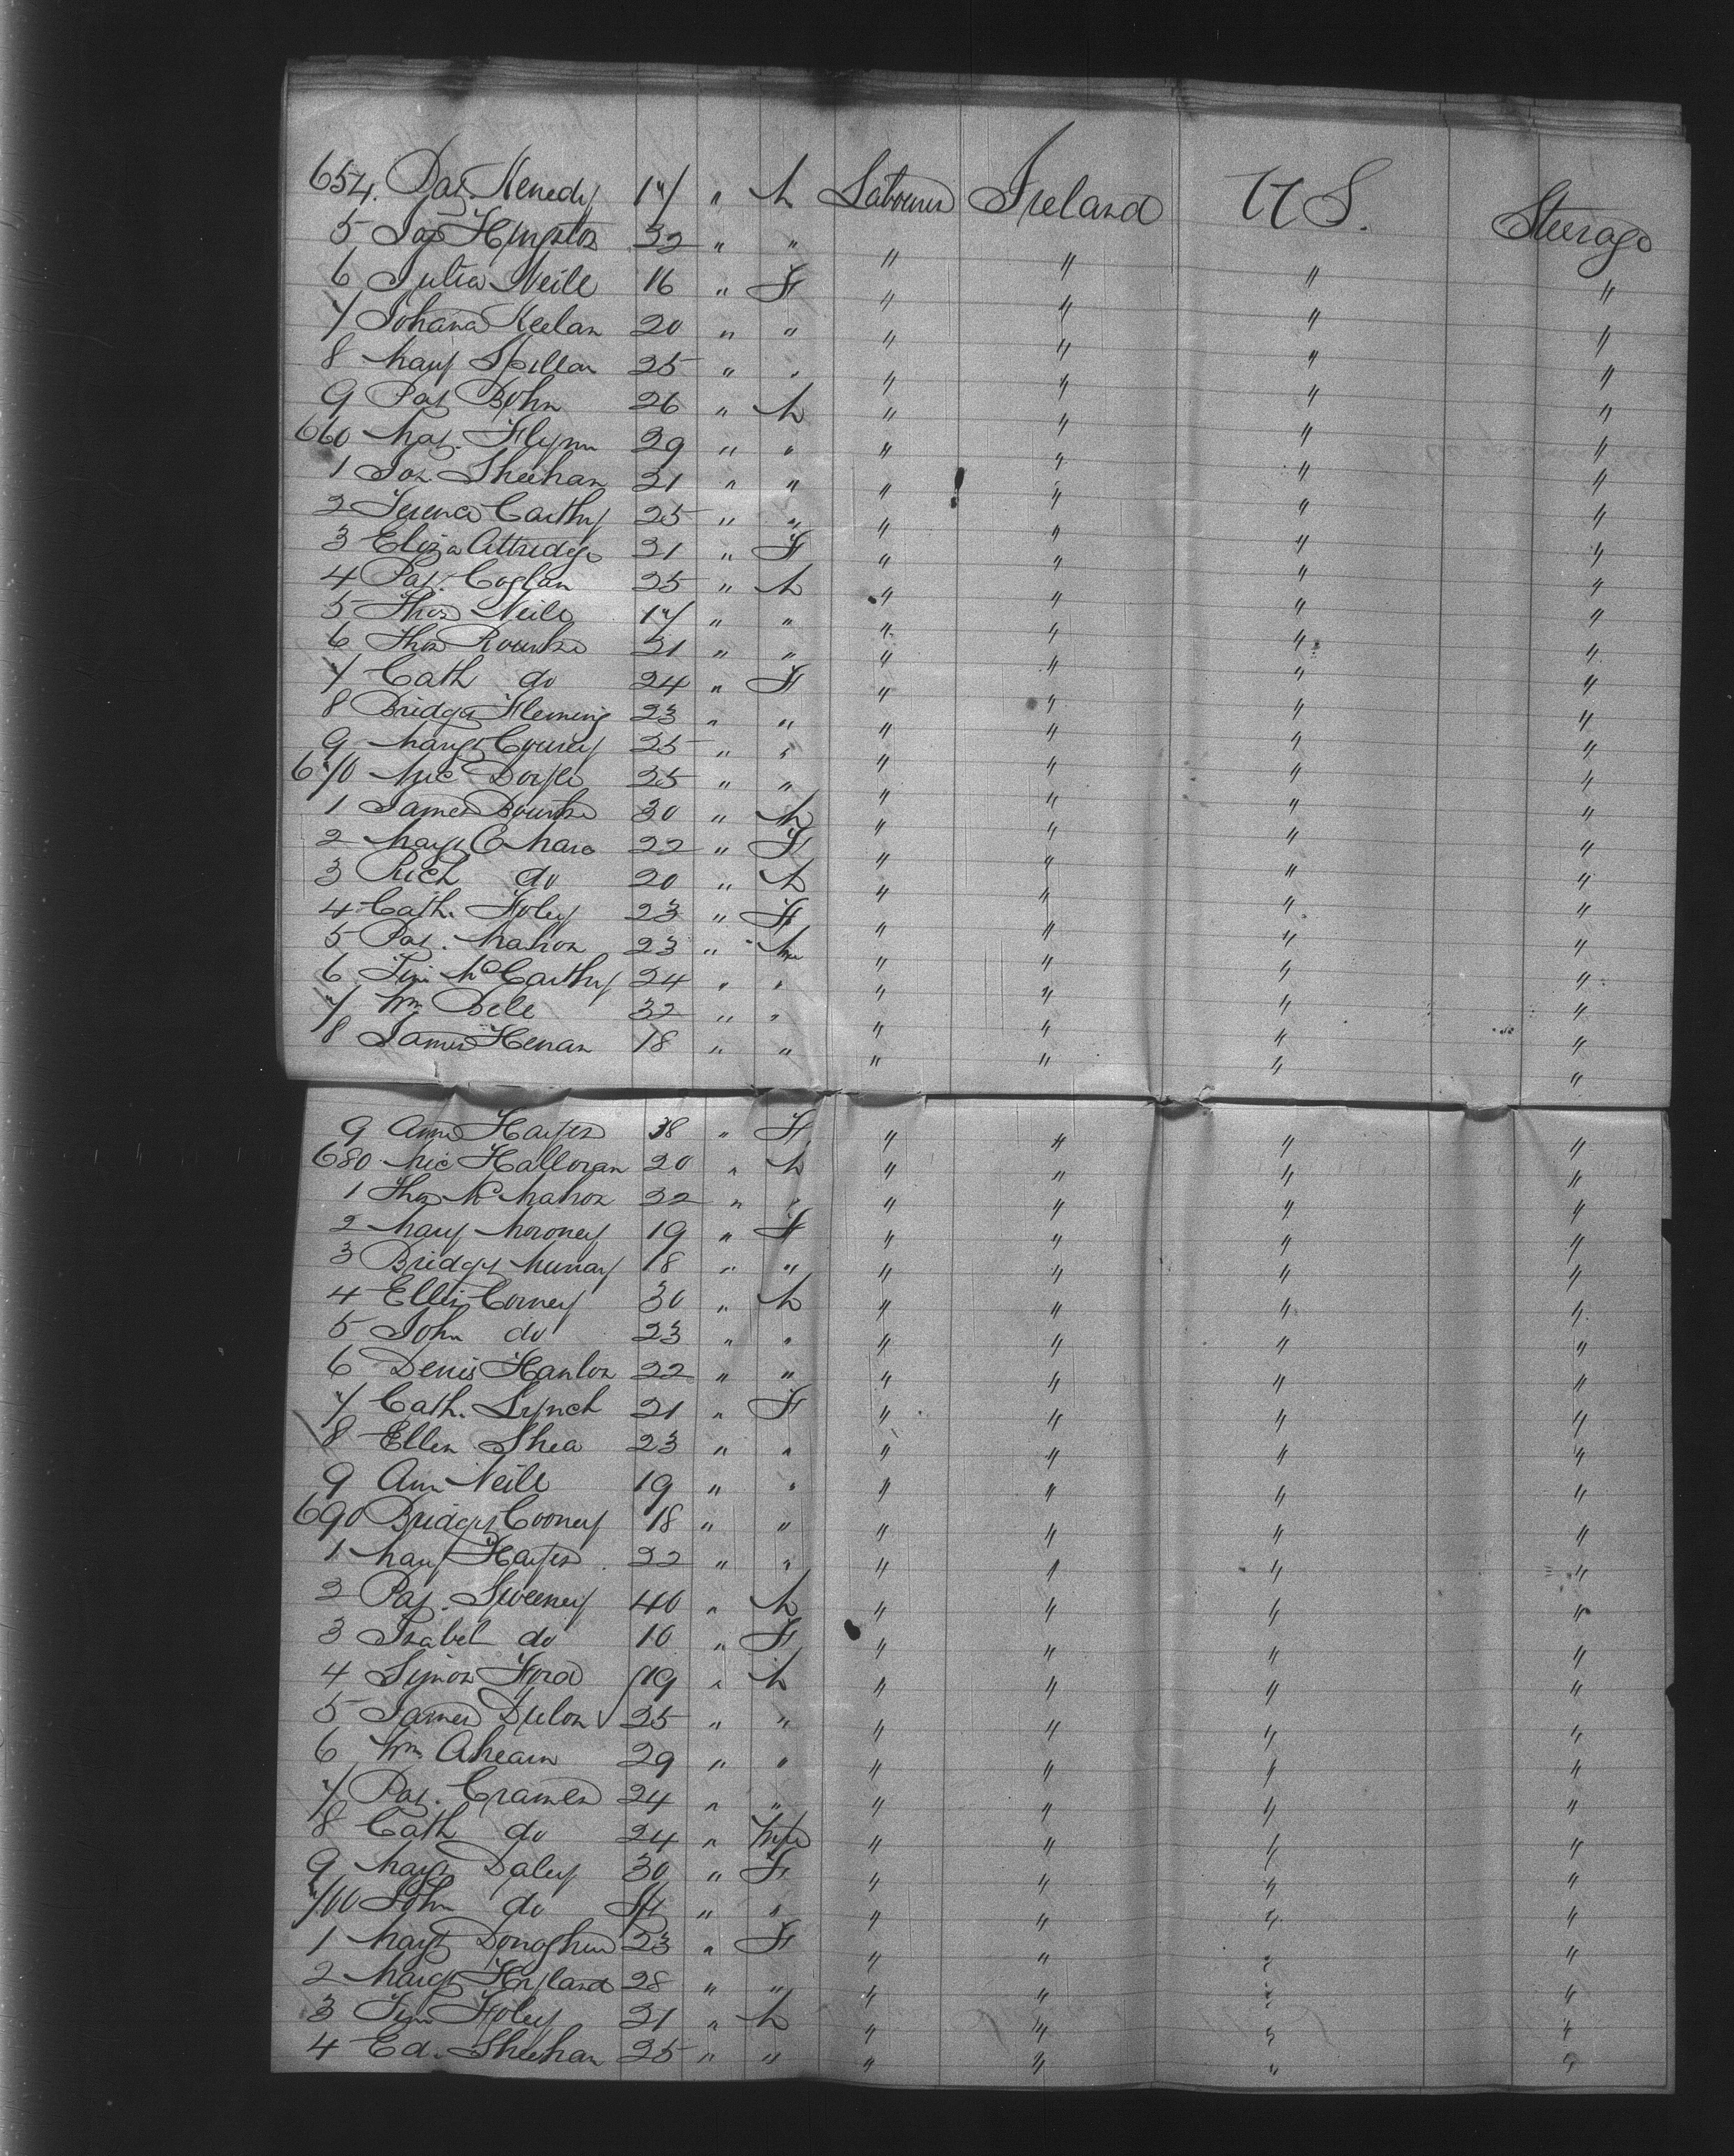 654. Pat. Kenedy 17 " M Labourer Ireland U S. Steerage
5 Jas Hingston 32 " " " " " "
6 Julia Neile 16 " F " " " "
7 Johana Keelan 20 " " " " " "
8 Mary Spillan 25 " " " " " "
9 Pat Bohn 26 " M " " " "
660 Mat. Flynn 29 " " " " " "
1 Jos. Sheehan 21 " " " " " "
2 Terence Carthy 25 " " " " " "
3 Eliza Attridge 21 " F " " " "
4 Pat. Coglan 25 " M " " " "
5 Thos Neile 17 " " " " " "
6 Thos Rourke 31 " " " " " "
7 Cath do 24 " F " " " "
8 Bridget Fleming 23 " " " " " "
9 Margt Courcy 25 " " " " " "
670 Mic Doyle 25 " " " " " "
1 James Bourke 30 " M " " " "
2 Margt O Mara 22 " F " " " "
3 Rich do 20 " M " " " "
4 Cath. Foley 23 " F " " " "
5 Pat. Mahon 23 " M " " " "
6 Tim McCarthy 24 " " " " " "
7 Wm 32 " " " " " "
8 James Henan 18 " " " " " "
9 Anne Hayes 38 " F " " " "
680 Mic Halloran 20 " M " " " "
1 Thos McMahon 22 " " " " " "
2 Mary Moroney 19 " F " " " "
3 Bridget Murray 18 " " " " " "
4 Ellen Corney 30 " M " " " "
5 John do 23 " " " " " "
6 Denis Hanlon 22 " " " " " "
7 Cath. Lynch 21 " F " " " "
8 Ellen Shea 23 " " " " " "
9 Ann Neile 19 " " " " " "
690 Bridget Cooney 18 " " " " " "
1 Mary Hayes 22 " " " " " "
2 Pat. Sweeney 40 " M " " " "
3 Isabel do 10 " F " " " "
4 Symon Ford 19 " M " " " "
5 James Dulon 25 " " " " " "
6 Wm Ahearn 29 " " " " " "
7 Pat. Cramen 24 " " " " " "
8 Cath do 24 " Wife " " " "
9 Margt Daley 30 " F " " " "
700 John do " " " " " "
1 Margt Donaghue 23 " F " " " "
2 Margt Hyland 28 " " " " " "
3 Tim Foley 21 " M " " " "
4 Ed. Sheehan 25 " " " " " "